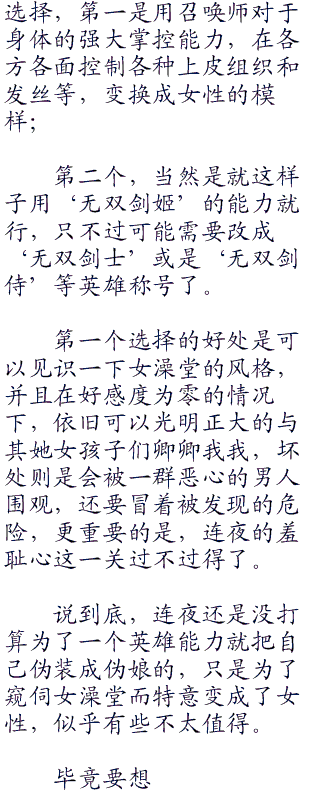 选择，第一是用召唤师对于
身体的强大掌控能力，在各
方各面控制各种上皮组织和
发丝等，变换成女性的模
样；
第二个，当然是就这样
子用‘无双剑姬’的能力就
行，只不过可能需要改成
‘无双剑士’或是‘无双剑
侍’等英雄称号了。
第一个选择的好处是可
以见识一下女澡堂的风格，
并且在好感度为零的情况
下，依旧可以光明正大的与
其她女孩子们卿卿我我，坏
处则是会被一群恶心的男人
围观，还要冒着被发现的危
险，更重要的是，连夜的羞
耻心这一关过不过得了。
说到底，连夜还是没打
算为了一个英雄能力就把自
己伪装成伪娘的，只是为了
窥伺女澡堂而特意变成了女
性，似乎有些不太值得。
毕竟要想